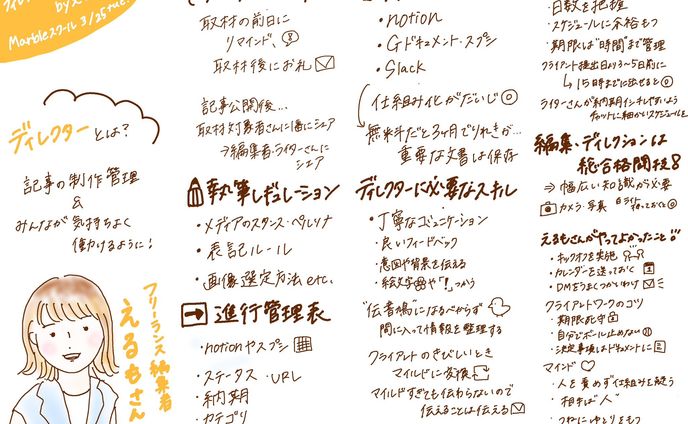 by
Marbleスクール 3/25 tue.
ディレクターとは?
記事の制作管理
&
みんなが気持ちよく
働けるように!
フリーランス編集者
えるもさん
取材の前日に
リマインド、
取材後にお礼
記事公開後…
取材対象者さんに
シェア
→編集者・ライターさんに
シェア
執筆レギュレーション
・メディアのスタンス・ペルソナ
・表記ルール
・画像選定方法 etc.
進行管理表
・notionやスプシ
・ステータス ・URL
・納期
・カテゴリ
・notion
・Gドキュメント・スプシ
・Slack
仕組み化がだいじ
無料だと3ヶ月でりれきが…
重要な文書は保存
ディレクターに必要なスキル
・丁寧なコミュニケーション
・良いフィードバック
・意図や背景を伝える
・絵文字や「!」つかう
"伝書鳩"になるべからず
間に入って情報を整理する
クライアントのきびしいとき
マイルドに変換
マイルドすぎても伝わらないので
伝えることは伝える
・日数を把握
・スケジュールに余裕もつ
・期限は"時間"まで管理
クライアント提出日より3〜5日前に
→15時までに出せると
編集・ディレクションは
総合格闘技
⇒幅広い知識が必要
カメラ・写真
えるもさんがやってよかったこと!!
・キックオフを実施
・カレンダーを送っておく
・DMをうまくつかいわけ
クライアントワークのコツ
・期限死守
・自分でボール止めない
・決定事項はドキュメントに
マインド
・人を責めず仕組みを疑う
・相手は"人"
・つねにゆとりをもつ